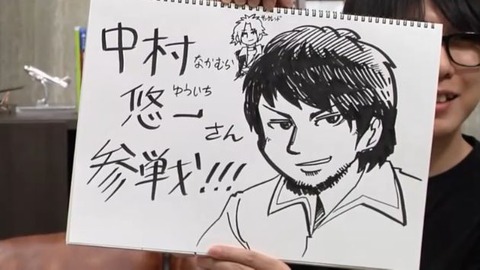 中村
なかむら
悠一さん
ゆういち
参戦!!!